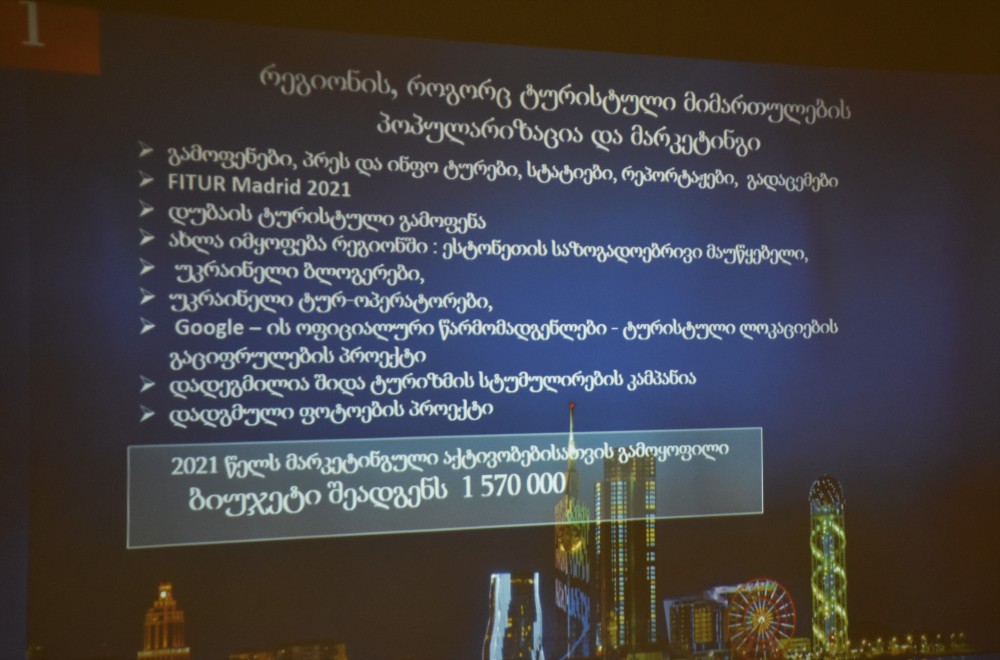 1
რეგიონის, როგორც ტურისტული მიმართულების
პოპულარიზაცია და მარკეტინგი
➢ გამოფენები, პრეს და ინფო ტურები, სტატიები, რეპორტაჟები, გადაცემები
➢ FITUR Madrid 2021
➢ დუბაის ტურისტული გამოფენა
➢ ახლა იმყოფება რეგიონში : ესტონეთის საზოგადოებრივი მაუწყებელი,
➢ უკრაინელი ბლოგერები,
➢ უკრაინელი ტურ-ოპერატორები,
➢ Google – ის ოფიციალური წარმომადგენლები - ტურისტული ლოკაციების
გაციფრულების პროექტი
➢ დადეგმილია შიდა ტურიზმის სტუმულირების კამპანია
➢ დადგმული ფოტოების პროექტი
2021 წელს მარკეტინგული აქტივობებისათვის გამოყოფილი
ბიუჯეტი შეადგენს 1 570 000